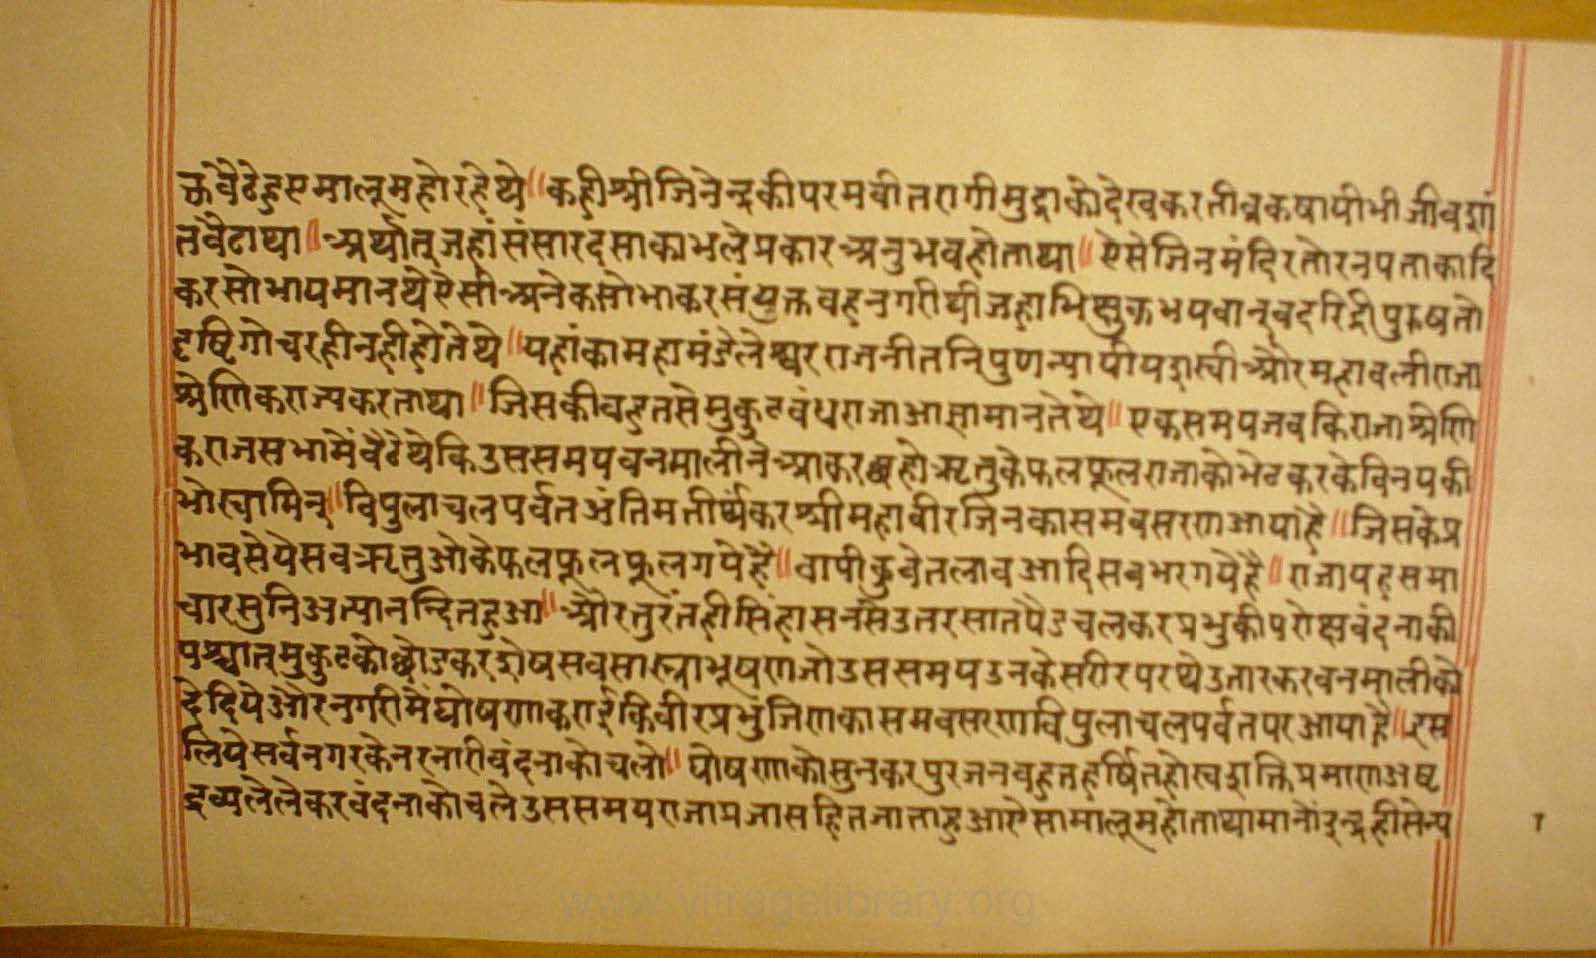 क्त वैठे हुए मालूम हो रहे थे॥ कही श्री जिनेन्द्र की परम वीतरागी मुद्रा को देखकर तीव्र कषायी भी जीव शां
त वैठा था॥ अर्थात् जहां संसार दसा का भले प्रकार अनुभव होता था॥ ऐसे जिन मंदिर तोरन पताकादि
कर सोभायमान थे ऐसी अनेक सोभा कर संयुक्त वह नगरी थी जहा भिक्षुक भयवान् व दरिद्री पुरुष तो
दृष्टिगोचर ही नही होते थे॥ यहां का महा मंडलेश्वर राजनीत निपुण न्यायी यशस्वी और महावली राजा
श्रेणिक राज्य करता था॥ जिसकी वहुत से मुकुट वंध राजा आज्ञा मानते थे॥ एक समय जव कि राजा श्रेणि
क राजसभा में वैठे थे कि उस समय वनमाली ने आकर छहो ऋतु के फल फूल राजा को भेट करके विनय की
भो स्वामिन्॥ विपुलाचल पर्वत अंतिम तीर्थंकर श्री महावीर जिन का समवसरण आया है॥ जिसके प्र
भाव से ये सव ऋतुओ के फल फूल फूल गये है॥ वापी कुवे तलाव आदि सव भर गये है॥ राजा यह समा
चार सुनि अत्यानन्दित हुआ॥ और तुरंत ही सिंहासन से उतर सात पैड चलकर प्रभु की परोक्ष वंदना की
पश्चात् मुकुट को छोडकर शेष सव वस्त्राभूषण जो उस समय उनके सरीर पर थे उतार कर वनमाली को
दे दिये और नगरी में घोषणा कराई कि वीर प्रभु जिण का समवसरण विपुलाचल पर्वत पर आया है॥ इस
लिये सर्व नगर के नर नारी वंदना को चलो॥ घोषणा को सुनकर पुरजन वहुत हर्षित हो स्व शक्ति प्रमाण अष्ट
द्रव्य ले लेकर वंदना को चले उस समय राजा प्रजा सहित जाता हुआ ऐसा मालूम होता था मानों इन्द्र ही सेन्य
www.vitragelibrary.org